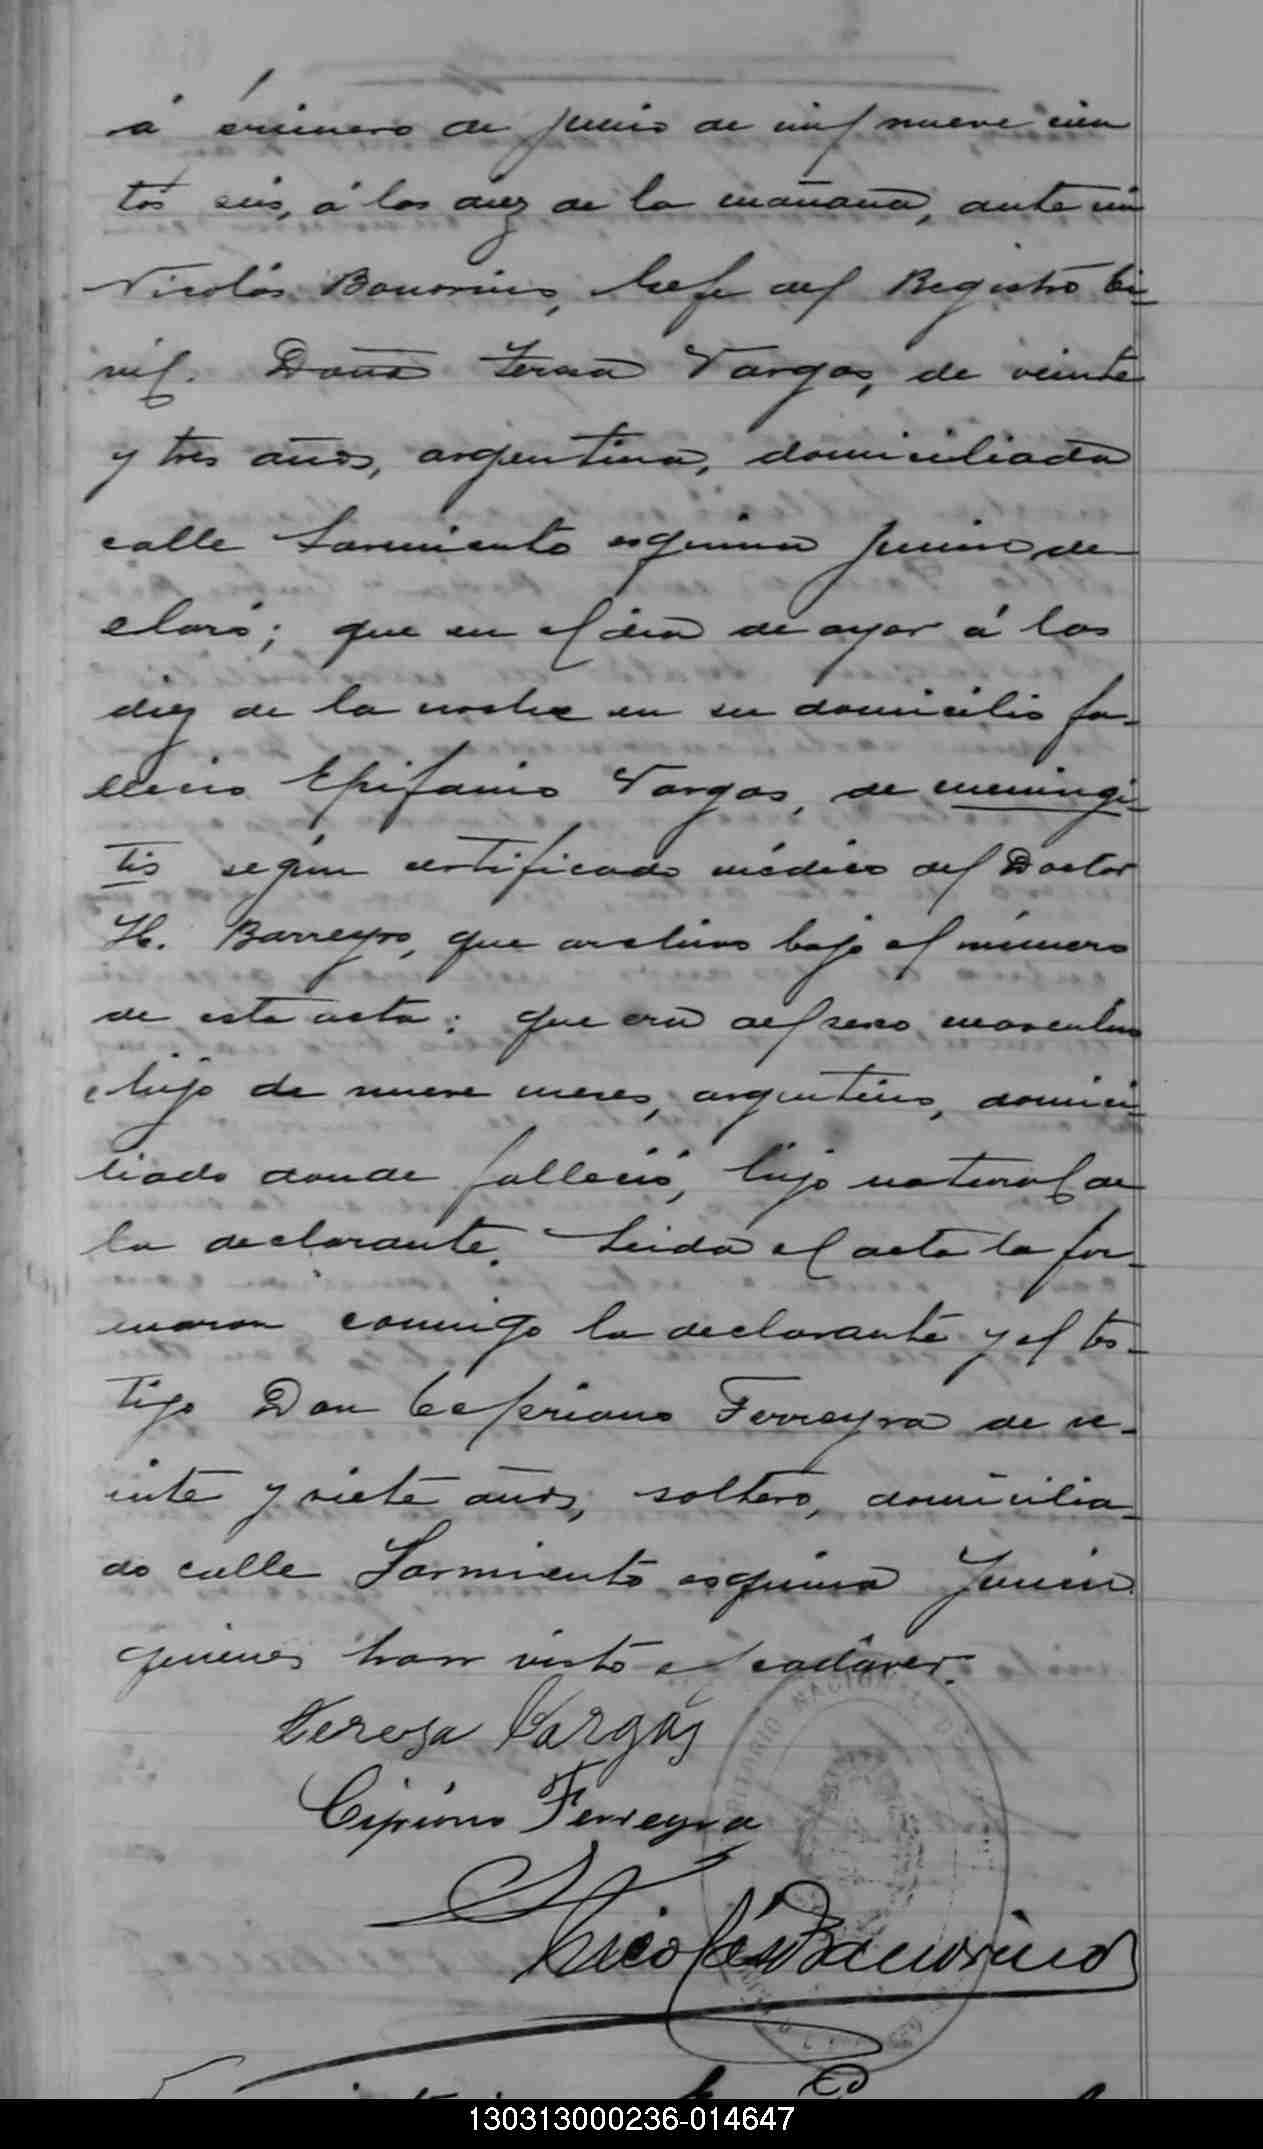 á primero de Junio de mil nueve cien
tos seis, á las diez de la mañana, ante mi
Nicolás Bonorino, Gefe del Registro Ci-
vil. Doña Teresa Vargas, de veinte
y tres años, argentina, domiciliada
calle Sarmiento esquina Junin, de
claró; que en el dia de ayer á las
diez de la noche en su domicilio fa-
llecio Epifanio Vargas, de meningi-
tis según certificado médico del Doctor
H. Barreyro, que archivo bajo el número
de esta acta: que era del sexo masculino
hijo de nueve meses, argentino, domici-
liado donde falleció, hijo natural de
la declarante. Leida el acta la fir-
maron comigo la declarante y el tes-
tigo Don Ceferiano Ferreyra de ve-
inte y siete años, soltero, domicilia-
do calle Sarmiento esquina Junin
quienes han visto el cadáver.
Teresa Vargas
Cipriano Ferreyra
Nicolás Bonorino
NACIONAL
130313000236-014647